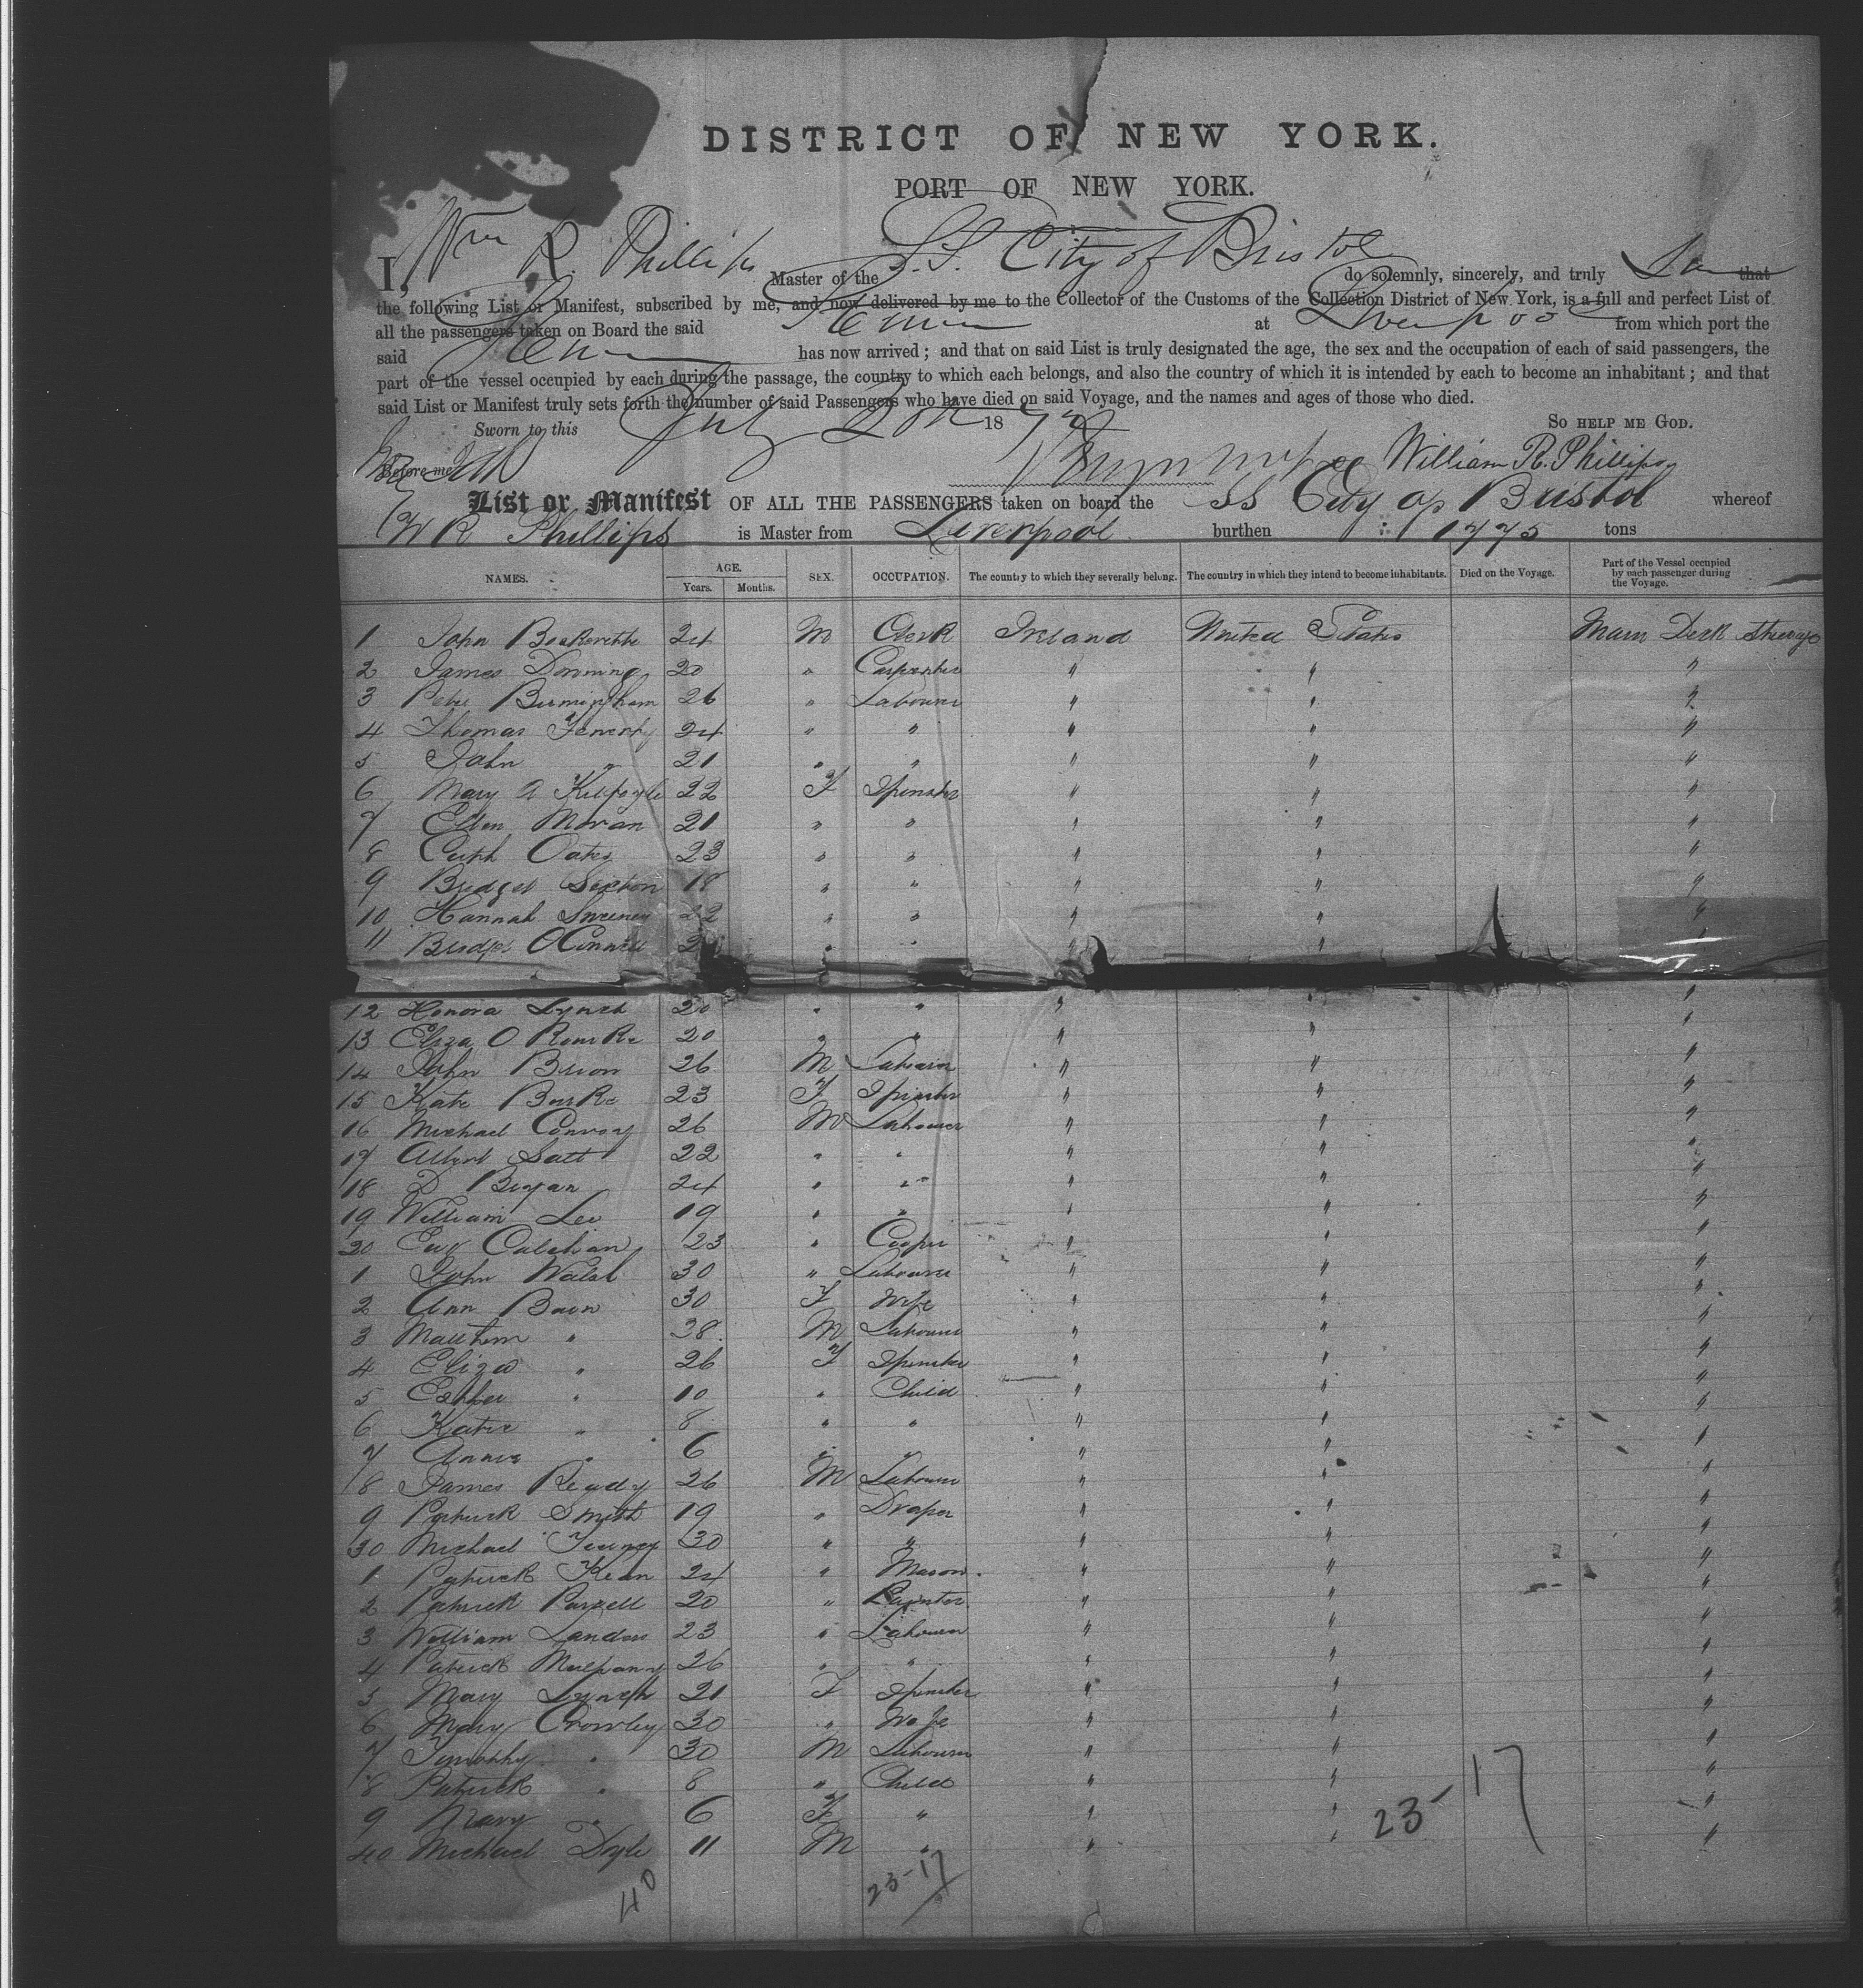 DISTRICT OF NEW YORK.
PORT OF NEW YORK.
I, Wm R. Phillips Master of the S.S. City of Bristol do solemnly, sincerely, and truly that
the following List or Manifest, subscribed by me, and now delivered by me to the Collector of the Customs of the Collection District of New York, is a full and perfect List of
all the passengers taken on Board the said at Liverpool from which port the
said has now arrived; and that on said List is truly designated the age, the sex and the occupation of each of said passengers, the
part of the vessel occupied by each during the passage, the country to which each belongs, and also the country of which it is intended by each to become an inhabitant; and that
said List or Manifest truly sets forth the number of said Passengers who have died on said Voyage, and the names and ages of those who died.
Sworn to this July 18 SO HELP ME GOD.
Before me William R. Phillips
List or Manifest OF ALL THE PASSENGERS taken on board the SS City of Bristol whereof
W R Phillips is Master from Liverpool burthen 1775 tons
NAMES. AGE. Years. Months. SEX. OCCUPATION. The country to which they severally belong. The country in which they intend to become inhabitants. Died on the Voyage. Part of the Vessel occupied by each passenger during the Voyage.
1 John 24 M Clerk Ireland United States Main Deck Steerage
2 James Downing 20 " Carpenter " " "
3 Peter Birmingham 26 " Labourer " " "
4 Thomas 24 " " " " "
5 John " 21 " " " " "
6 Mary A 22 F Spinster " " "
7 Ellen Moran 21 " " " " "
8 Cath Oates 23 " " " " "
9 Bridget Sexton 18 " " " " "
10 Hannah Sweeney 22 " " " " "
11 Bridget O'Connell " " " "
12 Honora Lynch 20 " " " " "
13 Eliza O Rourke 20 " " " "
14 John 26 M Labourer " " "
15 Kate Burke 23 F Spinster " " "
16 Michael Conroy 26 M Labourer " " "
17 Albert 22 " " " " "
18 D 24 " " " " "
19 William Lee 19 " " " " "
20 23 " Cooper " " "
1 John Walsh 30 " Labourer " " "
2 Ann 30 F Wife " " "
3 Matthew " 38 M Labourer " " "
4 Eliza " 26 F Spinster " " "
5 Esther " 10 " Child " " "
6 Katie " 8 " " " " "
7 Annie " 6 " " " " "
8 James Ready 26 M Labourer " " "
9 Patrick Smith 19 " Draper " " "
30 Michael 30 " " " " "
1 Patrick Kean 24 " Mason " " "
2 Patrick Purcell 20 " Painter " " "
3 William Landers 23 " Labourer " " "
4 Patrick 26 " " " " "
5 Mary Lynch 21 F Spinster " " "
6 Mary Crowley 30 " Wife " " "
7 Timothy " 30 M Labourer " " "
8 Patrick " 8 " Child " " "
9 Mary " 6 F " " " "
40 Michael Doyle 11 M " " " "
23-17
40 23-17